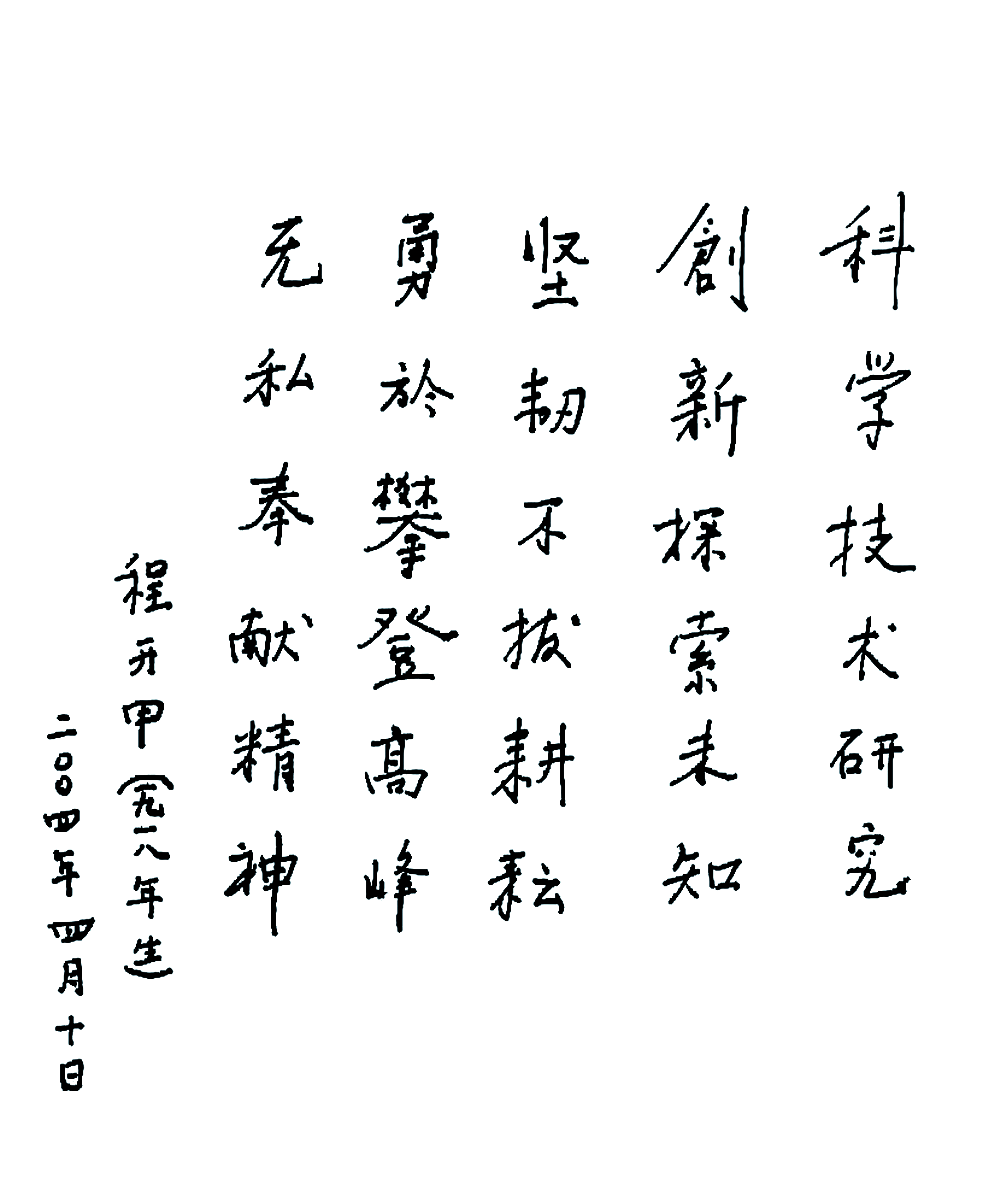 科学技术研究
創新探索未知
坚韧不拔耕耘
勇於攀登高峰
无私奉献精神
程开甲（一九一八年生）
二〇〇四年四月十日